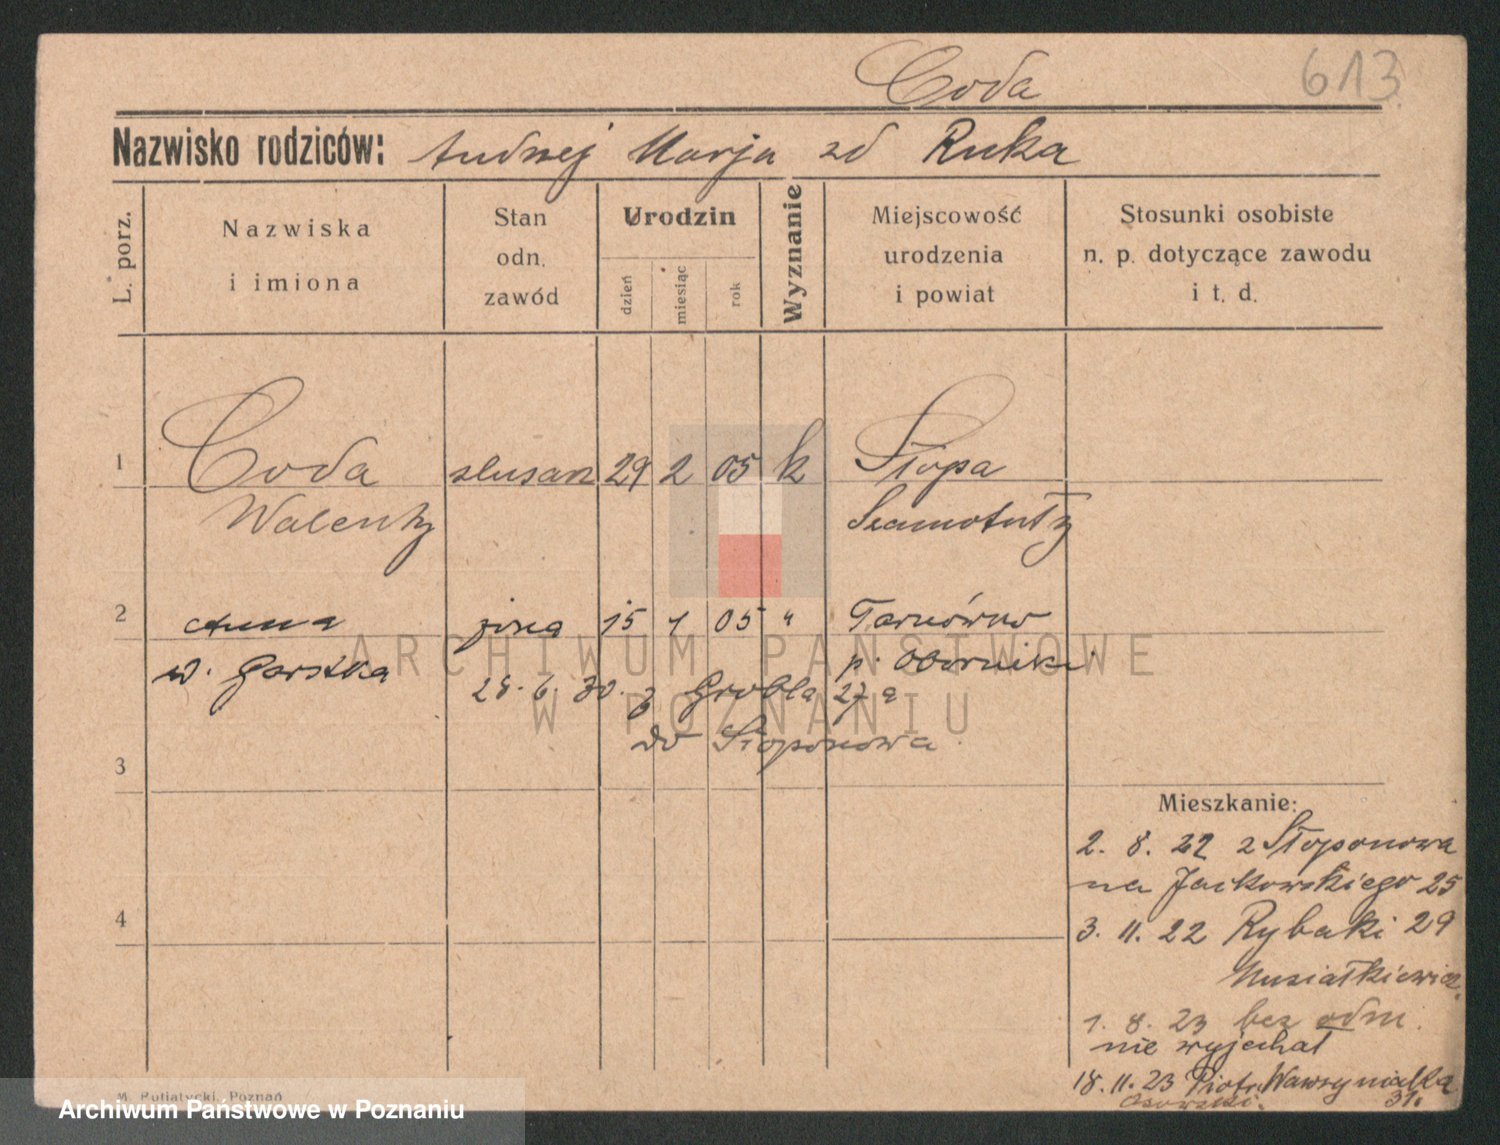 Coda
613
Nazwisko rodziców: Andrzej Marja zd Ruka
L. porz.
Nazwiska
i imiona
Stan
odn.
zawód
Urodzin
dzień
miesiąc
rok
Wyznanie
Miejscowość
urodzenia
i powiat
Stosunki osobiste
n. p. dotyczące zawodu
i t. d.
1 Coda ślusarz 29 2 05 k Słopa
Walenty Szamotuły
2 Anna żona 15 1 05 " Tarnówko
w. Garstka p. Oborniki
28. 6. 30. z Grobla 27a
do Słoponowa
3
Mieszkanie:
2. 8. 22 z Słoponowa
na Jackowskiego 25
4
3. 11. 22 Rybaki 29
Musiałkiewicz
1. 8. 23 bez odm.
nie wyjechał
18. 11. 23 Piotr Wawrzyniaka
31.
ARCHIWUM PAŃSTWOWE
W POZNANIU
M. Putiatycki, Poznań
Archiwum Państwowe w Poznaniu